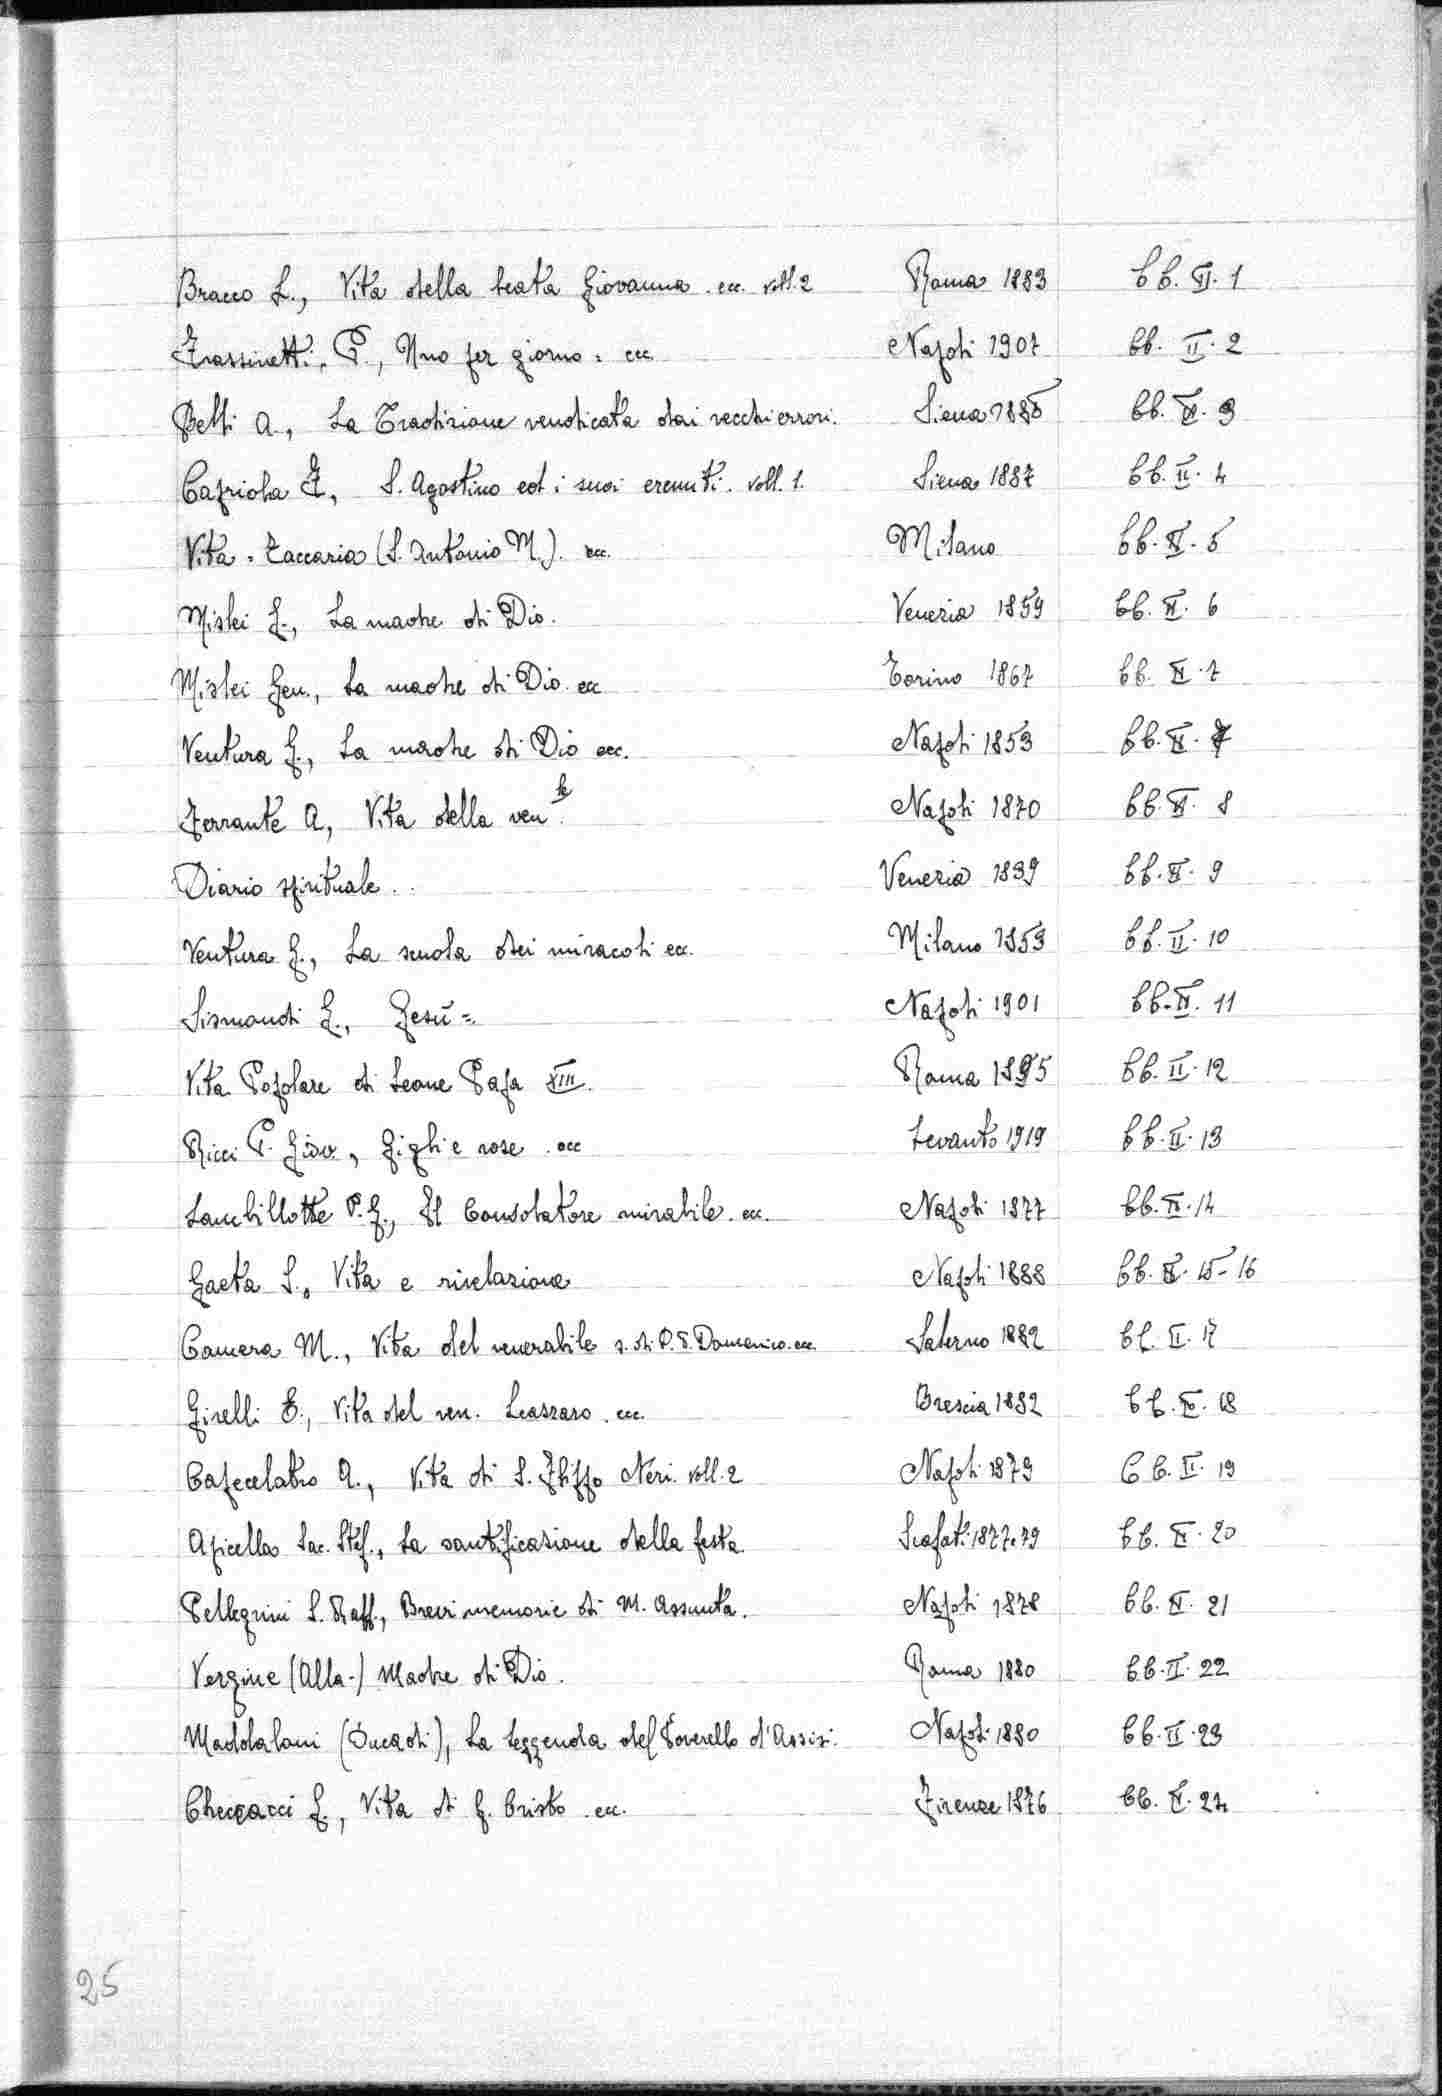 Bracco L., Vita della beata Giovanna . ecc. voll. 2 Roma 1883 bb. II. 1
Frassinetti, P., Uno per giorno = ecc Napoli 1907 bb. II. 2
Betti A., La Tradizione vendicata dai vecchi errori. Siena 1885 bb. II. 3
Capriola F., S. Agostino ed i suoi eremiti. voll. 1. Siena 1887 bb. II. 4
Vita = Zaccaria (S. Antonio M.). ecc. Milano bb. II. 5
Mislei G., La madre di Dio. Venezia 1859 bb. II. 6
Mislei Gen., La madre di Dio. ecc Torino 1867 bb. II. 7
Ventura G., La madre di Dio ecc. Napoli 1853 bb. II. 7
Ferrante A., Vita della ven.le Napoli 1870 bb. II. 8
Diario spirituale .. Venezia 1839 bb. II. 9
Ventura G., La scuola dei miracoli ecc. Milano 1853 bb. II. 10
Sismondi G., Gesù =. Napoli 1901 bb. II. 11
Vita Popolare di Leone Papa XIII. Roma 1895 bb. II. 12
Ricci P. Giov., Gigli e rose . ecc Levanto 1919 bb. II. 13
Lambillotte P. G., Il Consolatore mirabile. ecc. Napoli 1877 bb. II. 14
Gaeta S., Vita e rivelazione Napoli 1888 bb. II. 15-16
Camera M., Vita del venerabile s. di D. F. Domenico. ecc. Salerno 1882 bb. II. 17
Girelli E., Vita del ven. . ecc. Brescia 1882 bb. II. 18
Capecelatro A., Vita di S. Filippo Neri. voll. 2 Napoli 1879 bb. II. 19
Apicella Sac. Stef., La santificazione della festa. Scafati 1877-79 bb. II. 20
Pellegrini S. Raff., Brevi memorie di M. Assunta. Napoli 1878 bb. II. 21
Vergine (Alla-) Madre di Dio. Roma 1880 bb. II. 22
Maddalani (Duca di), La leggenda del Poverello d'Assisi. Napoli 1880 bb. II. 23
Checcacci G., Vita di G. Cristo . ecc. Firenze 1876 bb. II. 24
25